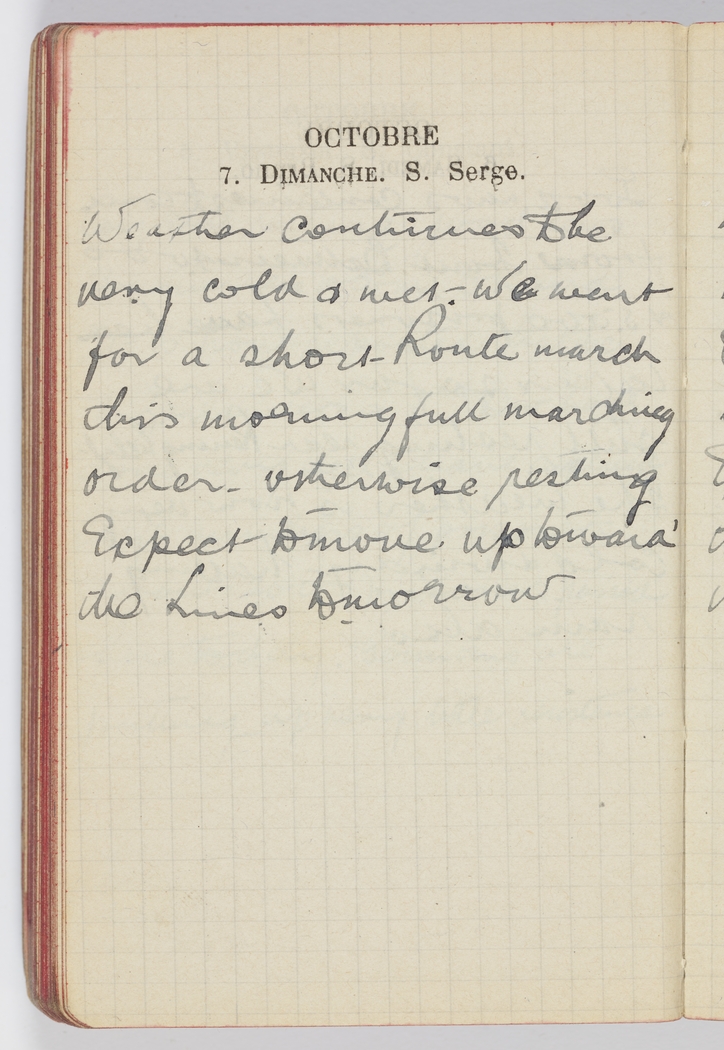 OCTOBRE
7. DIMANCHE. S. Serge.
Weather continues to be
very cold & wet - we went
for a short Route march
this morning full marching
order - otherwise resting
Expect to move up toward
the Lines tomorrow